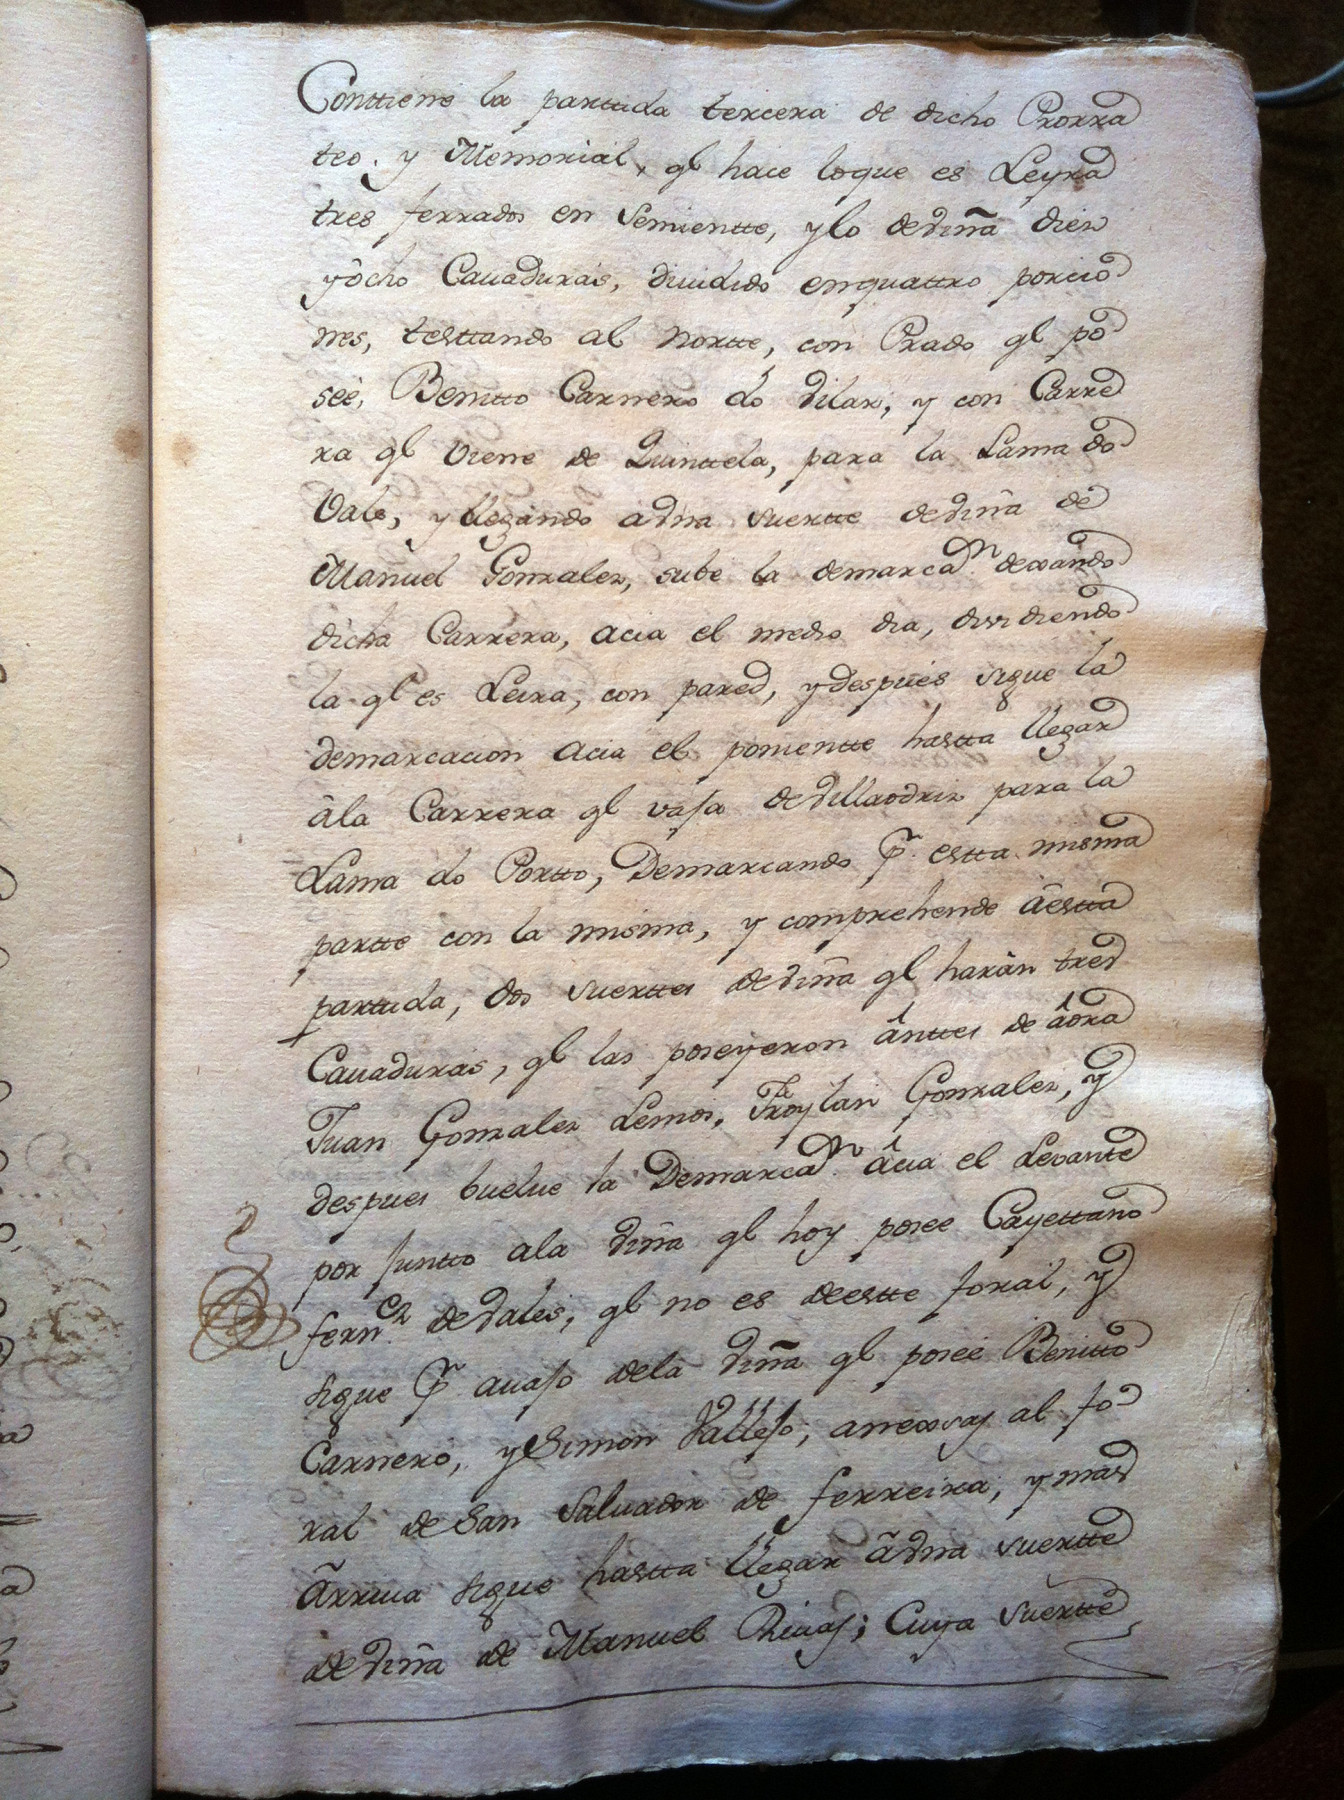 Conttiene la parttida tercera de dicho Prorra
teo, y Memorial, ql hace loque es Leyra
tres ferrados en Semientte, ylo deviña diez
yócho Cauaduras, diuidido enquattro porcio
nes, testtando al Nortte, con Prado ql po
seé, Benitto Carnero do Vilar, y con Carre
ra ql Viene de Quinttela, para la Lama do
Vale, y llegando adha suertte deviña de
Manuel Gonzalez, sube la demarcan. dexando
dicha Carrera, acia el medio dia, dividiendo
la ql es Leira, con pared, ydespues sigue la
demarcacion acia el ponientte hastta llegar
ála Carrera ql vaja deVillaodriz para la
Lama do Portto, Demarcando pr. estta misma
partte con la misma, y comprehende áestta
parttida, dos suerttes deviña ql harán tres
Cauaduras, ql las poseyeron ánttes de áora
Juan Gonzalez Lemos, Froylan Gonzalez, y
despues buelue la Demarcan. ácia el Levante
por Juntto ala viña ql hoy posee Cayettano
fernez. deVales, ql no es deestte foral, y
sigue pr. auajo dela viña ql poseé Benitto
Carnero, ySimon Vallejo, anexsas al fo
ral de San Saluador de ferreira, y mas
árriua sigue hastta llegar ádha suertte
deviña de Manuel Riuas; Cuya Suertte